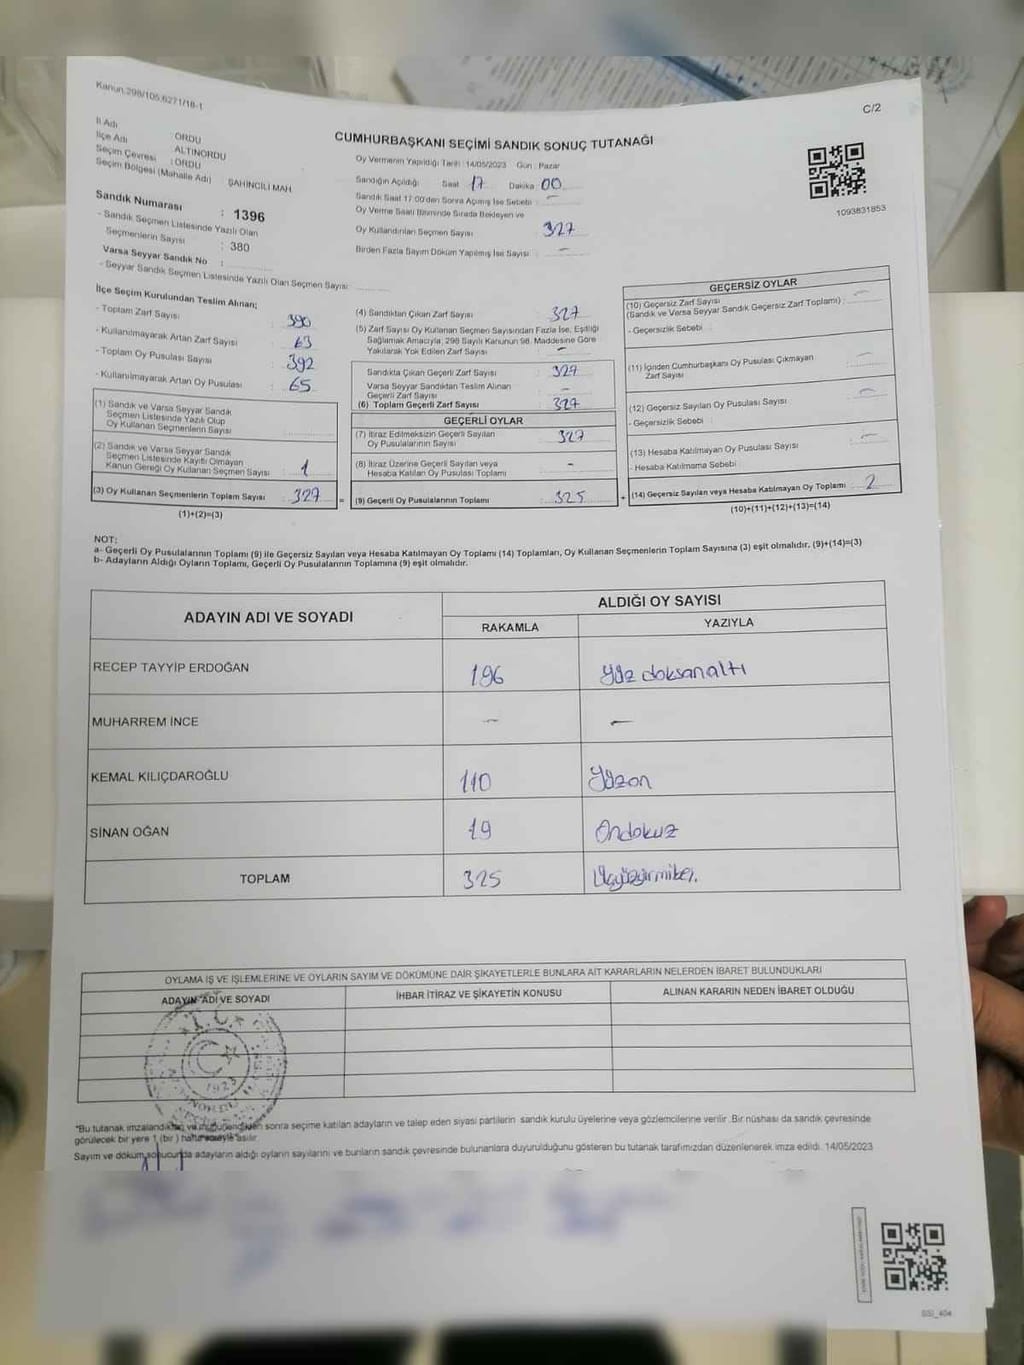 Kanun:298/105,6271/18-1
C/2
İl Adı : ORDU
İlçe Adı : ALTINORDU
Seçim Çevresi : ORDU
Seçim Bölgesi (Mahalle Adı) ŞAHİNCİLİ MAH.
Sandık Numarası : 1396
- Sandık Seçmen Listesinde Yazılı Olan
Seçmenlerin Sayısı : 380
Varsa Seyyar Sandık No :
- Seyyar Sandık Seçmen Listesinde Yazılı Olan Seçmen Sayısı:
CUMHURBAŞKANI SEÇİMİ SANDIK SONUÇ TUTANAĞI
Oy Vermenin Yapıldığı Tarih: 14/05/2023 Gün: Pazar
Sandığın Açıldığı Saat 17 Dakika 00
Sandık Saat 17:00'den Sonra Açılmış İse Sebebi : –
Oy Verme Saati Bitiminde Sırada Bekleyen ve
Oy Kullandırılan Seçmen Sayısı 327
Birden Fazla Sayım Döküm Yapılmış İse Sayısı : –
1093831853
İlçe Seçim Kurulundan Teslim Alınan;
- Toplam Zarf Sayısı : 390
- Kullanılmayarak Artan Zarf Sayısı : 63
- Toplam Oy Pusulası Sayısı : 392
- Kullanılmayarak Artan Oy Pusulası : 65
(1) Sandık ve Varsa Seyyar Sandık
Seçmen Listesinde Yazılı Olup
Oy Kullanan Seçmenlerin Sayısı
(2) Sandık ve Varsa Seyyar Sandık
Seçmen Listesinde Kayıtlı Olmayan
Kanun Gereği Oy Kullanan Seçmen Sayısı : 1
(3) Oy Kullanan Seçmenlerin Toplam Sayısı : 327
(1)+(2)=(3)
(4) Sandıktan Çıkan Zarf Sayısı : 327
(5) Zarf Sayısı Oy Kullanan Seçmen Sayısından Fazla İse, Eşitliği
Sağlamak Amacıyla; 298 Sayılı Kanunun 98. Maddesine Göre
Yakılarak Yok Edilen Zarf Sayısı : –
Sandıkta Çıkan Geçerli Zarf Sayısı : 327
Varsa Seyyar Sandıktan Teslim Alınan
Geçerli Zarf Sayısı : –
(6) Toplam Geçerli Zarf Sayısı : 327
GEÇERLİ OYLAR
(7) İtiraz Edilmeksizin Geçerli Sayılan
Oy Pusulalarının Sayısı : 327
(8) İtiraz Üzerine Geçerli Sayılan veya
Hesaba Katılan Oy Pusulası Toplamı : –
= (9) Geçerli Oy Pusulalarının Toplamı : 325
GEÇERSİZ OYLAR
(10) Geçersiz Zarf Sayısı
(Sandık ve Varsa Seyyar Sandık Geçersiz Zarf Toplamı) : –
- Geçersizlik Sebebi :
(11) İçinden Cumhurbaşkanı Oy Pusulası Çıkmayan
Zarf Sayısı : –
(12) Geçersiz Sayılan Oy Pusulası Sayısı : –
- Geçersizlik Sebebi :
(13) Hesaba Katılmayan Oy Pusulası Sayısı : –
- Hesaba Katılmama Sebebi :
+ (14) Geçersiz Sayılan veya Hesaba Katılmayan Oy Toplamı : 2
(10)+(11)+(12)+(13)=(14)
NOT:
a- Geçerli Oy Pusulalarının Toplamı (9) ile Geçersiz Sayılan veya Hesaba Katılmayan Oy Toplamı (14) Toplamları, Oy Kullanan Seçmenlerin Toplam Sayısına (3) eşit olmalıdır. (9)+(14)=(3)
b- Adayların Aldığı Oyların Toplamı, Geçerli Oy Pusulalarının Toplamına (9) eşit olmalıdır.
ADAYIN ADI VE SOYADI
ALDIĞI OY SAYISI
RAKAMLA YAZIYLA
RECEP TAYYİP ERDOĞAN 196 Yüz doksanaltı
MUHARREM İNCE – –
KEMAL KILIÇDAROĞLU 110 Yüzon
SİNAN OĞAN 19 Ondokuz
TOPLAM 325 Üçyüzyirmibeş
OYLAMA İŞ VE İŞLEMLERİNE VE OYLARIN SAYIM VE DÖKÜMÜNE DAİR ŞİKAYETLERLE BUNLARA AİT KARARLARIN NELERDEN İBARET BULUNDUKLARI
ADAYIN ADI VE SOYADI İHBAR İTİRAZ VE ŞİKAYETİN KONUSU ALINAN KARARIN NEDEN İBARET OLDUĞU
T.C.
1923
*Bu tutanak imzalandıktan ve mühürlendikten sonra seçime katılan adayların ve talep eden siyasi partilerin sandık kurulu üyelerine veya gözlemcilerine verilir. Bir nüshası da sandık çevresinde
görülecek bir yere 1 (bir) hafta süreyle asılır.
Sayım ve döküm sonucunda adayların aldığı oyların sayılarını ve bunların sandık çevresinde bulunanlara duyurulduğunu gösteren bu tutanak tarafımızdan düzenlenerek imza edildi. 14/05/2023
SSİ_404